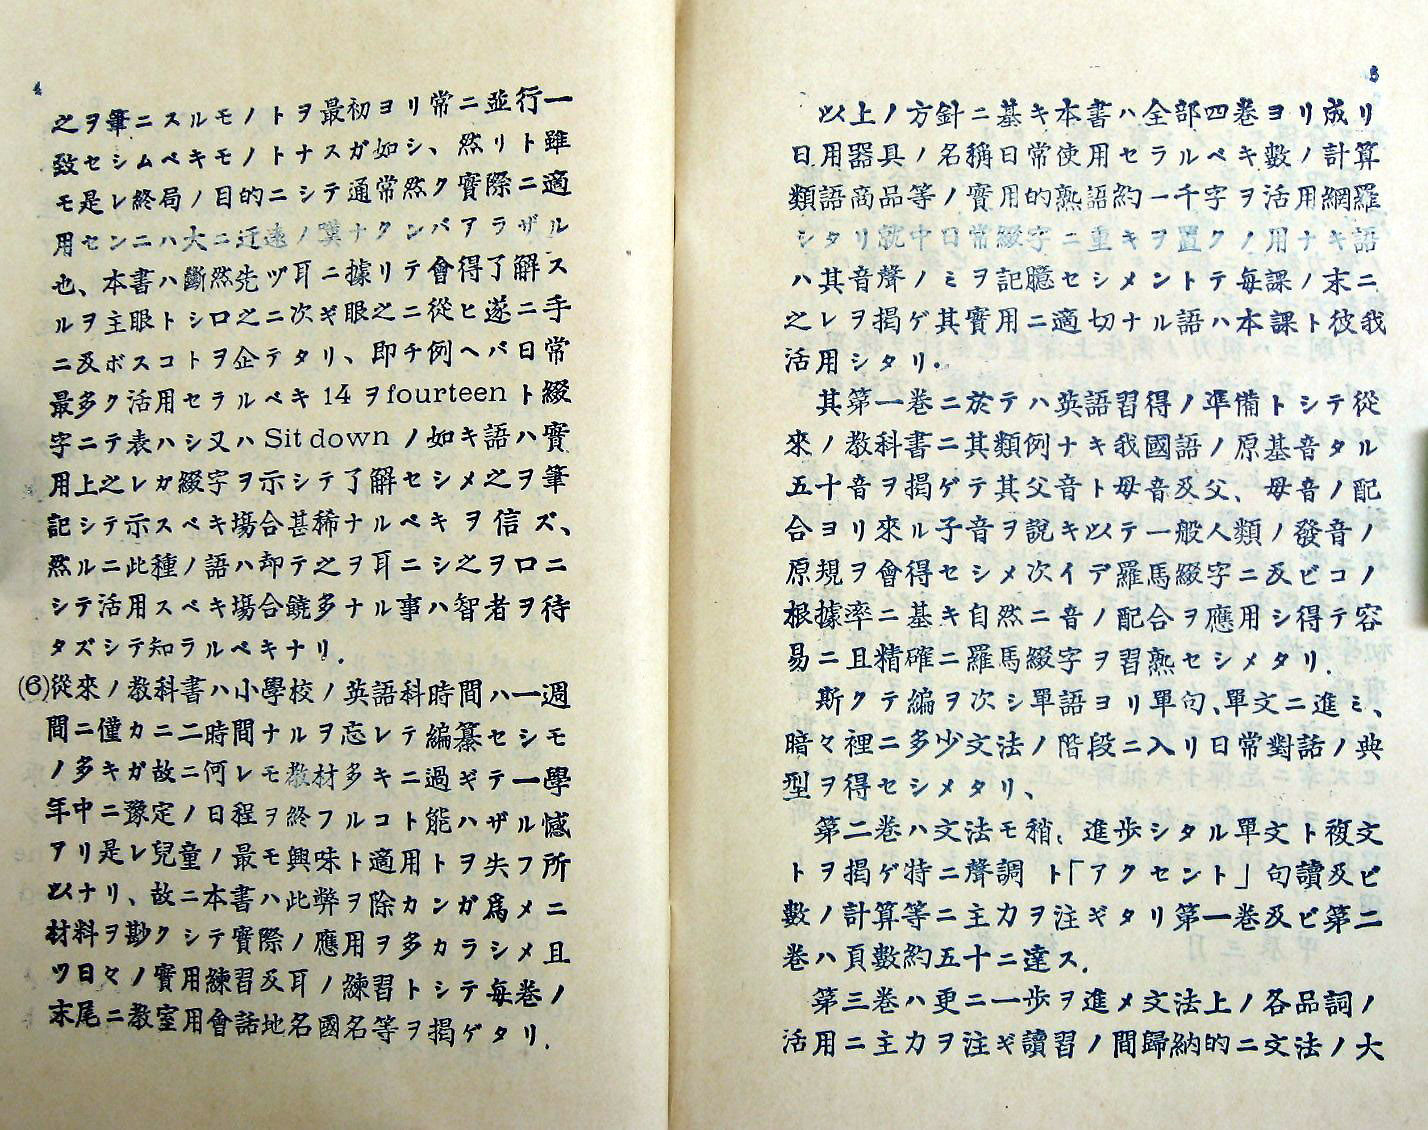 4
之ヲ筆ニスルモノトヲ最初ヨリ常ニ並行一
致セシムベキモノトナスガ如シ、然リト雖
モ是レ終局ノ目的ニシテ通常然ク實際ニ適
用センニハ大ニ迂遠ノ嘆ナクンバアラザル
也、本書ハ斷然先ヅ耳ニ據リテ會得了解ス
ルヲ主眼トシ口之ニ次ギ眼之ニ從ヒ遂ニ手
ニ及ボスコトヲ企テタリ、即チ例ヘバ日常
最多ク活用セラルベキ 14 ヲ fourteen ト綴
字ニテ表ハシ又ハ Sit down ノ如キ語ハ實
用上之レガ綴字ヲ示シテ了解セシメ之ヲ筆
記シテ示スベキ塲合甚稀ナルベキヲ信ズ、
然ルニ此種ノ語ハ却テ之ヲ耳ニシ之ヲロニ
シテ活用スベキ塲合饒多ナル事ハ智者ヲ待
タズシテ知ラルベキナリ.
(6)從來ノ教科書ハ小學校ノ英語科時間ハ一週
間ニ僅カニ二時間ナルヲ忘レテ編纂セシモ
ノ多キガ故ニ何レモ教材多キニ過ギテ一學
年中ニ豫定ノ日程ヲ終フルコト能ハザル憾
アリ是レ兒童ノ最モ興味ト適用トヲ失フ所
以ナリ、故ニ本書ハ此弊ヲ除カンガ爲メニ
材料ヲ尠クシテ實際ノ應用ヲ多カラシメ且
ツ日々ノ實用練習及耳ノ練習トシテ毎卷ノ
末尾ニ教室用會話地名國名等ヲ揭ゲタリ.
5
以上ノ方針ニ基キ本書ハ全部四卷ヨリ成リ
日用器具ノ名稱日常使用セラルベキ數ノ計算
類語商品等ノ實用的熟語約一千字ヲ活用網羅
シタリ就中日常綴字ニ重キヲ置クノ用ナキ語
ハ其音聲ノミヲ記臆セシメントテ毎課ノ末ニ
之レヲ揭ゲ其實用ニ適切ナル語ハ本課ト彼我
活用シタリ.
其第一卷ニ於テハ英語習得ノ準備トシテ從
來ノ教科書ニ其類例ナキ我國語ノ原基音タル
五十音ヲ揭ゲテ其父音ト母音及父、母音ノ配
合ヨリ來ル子音ヲ說キ以テ一般人類ノ發音ノ
原規ヲ會得セシメ次イデ羅馬綴字ニ及ビコノ
根據率ニ基キ自然ニ音ノ配合ヲ應用シ得テ容
易ニ且精確ニ羅馬綴字ヲ習熟セシメタリ.
斯クテ編ヲ次シ單語ヨリ單句、單文ニ進ミ、
暗々裡ニ多少文法ノ階段ニ入リ日常對話ノ典
型ヲ得セシメタリ、
第二卷ハ文法モ稍、進歩シタル單文ト複文
トヲ揭ゲ特ニ聲調ト「アクセント」句讀及ビ
數ノ計算等ニ主力ヲ注ギタリ第一卷及ビ第二
卷ハ頁數約五十ニ達ス.
第三卷ハ更ニ一歩ヲ進メ文法上ノ各品詞ノ
活用ニ主力ヲ注ギ讀習ノ間歸納的ニ文法ノ大